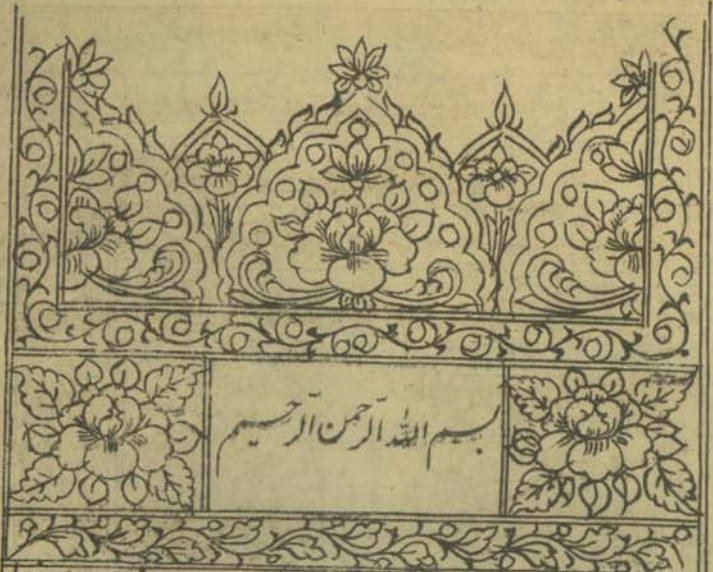 بسم الله الرّحمن الرّحیم